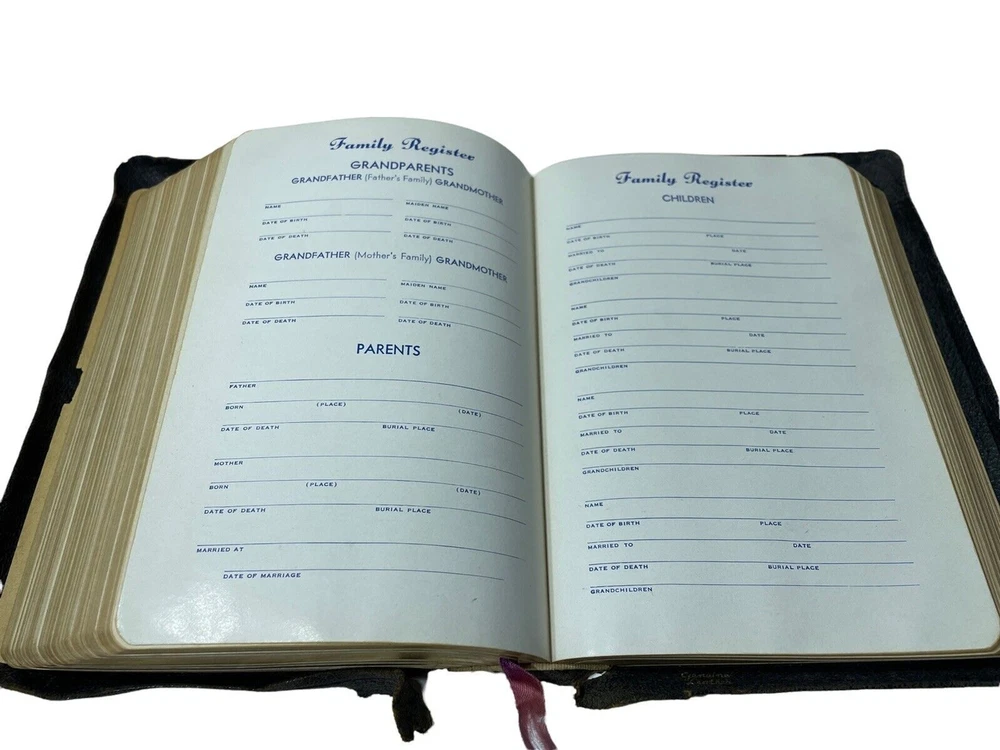 Family Register
GRANDPARENTS
GRANDFATHER (Father's Family) GRANDMOTHER
NAME MAIDEN NAME
DATE OF BIRTH DATE OF BIRTH
DATE OF DEATH DATE OF DEATH
GRANDFATHER (Mother's Family) GRANDMOTHER
NAME MAIDEN NAME
DATE OF BIRTH DATE OF BIRTH
DATE OF DEATH DATE OF DEATH
PARENTS
FATHER
BORN (PLACE) (DATE)
DATE OF DEATH BURIAL PLACE
MOTHER
BORN (PLACE) (DATE)
DATE OF DEATH BURIAL PLACE
MARRIED AT
DATE OF MARRIAGE
Family Register
CHILDREN
NAME
DATE OF BIRTH PLACE
MARRIED TO DATE
DATE OF DEATH BURIAL PLACE
GRANDCHILDREN
NAME
DATE OF BIRTH PLACE
MARRIED TO DATE
DATE OF DEATH BURIAL PLACE
GRANDCHILDREN
NAME
DATE OF BIRTH PLACE
MARRIED TO DATE
DATE OF DEATH BURIAL PLACE
GRANDCHILDREN
NAME
DATE OF BIRTH PLACE
MARRIED TO DATE
DATE OF DEATH BURIAL PLACE
GRANDCHILDREN
Genuine
Leather